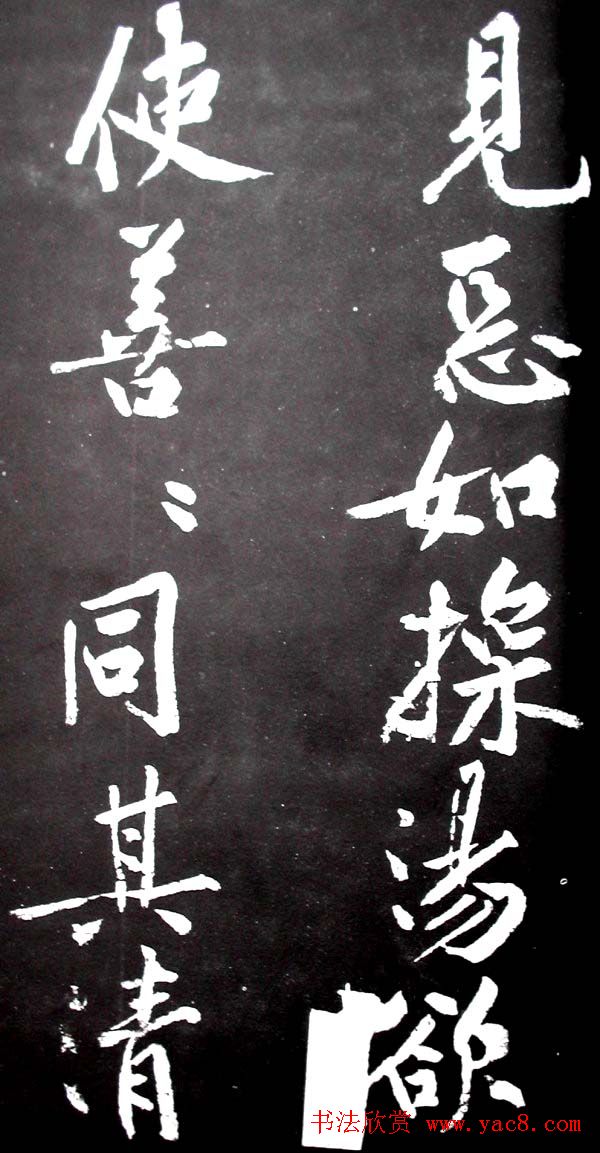 見惡如探湯欲
使善〻同其清
书法欣赏 www.yac8.com